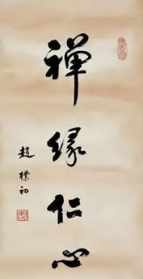 禅缘仁心
赵朴初